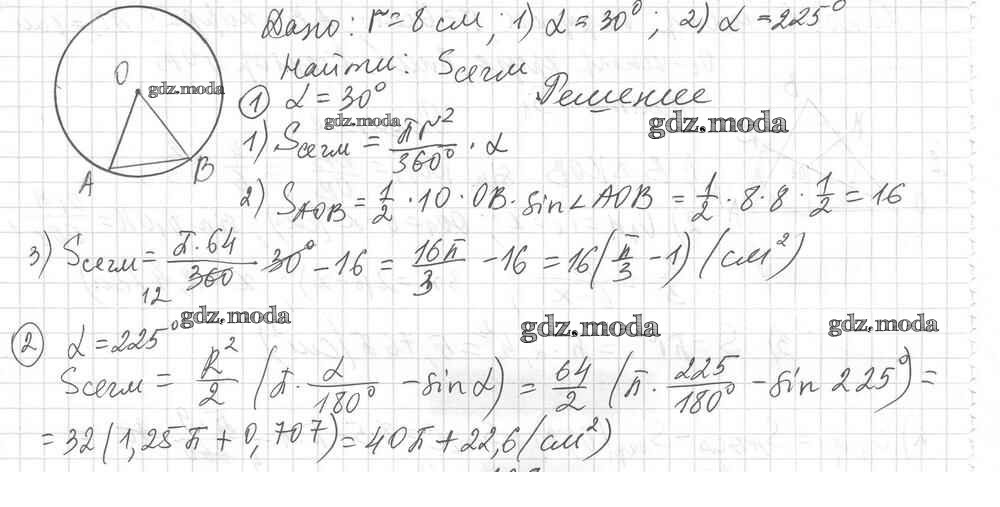 Дано: r = 8 см; 1) α = 30°; 2) α = 225°
Найти: Sсегм
O
gdz.moda
① α = 30°
Решение
gdz.moda
gdz.moda
1) Sсегм = πr²/360° · α
A
B
2) SAOB = 1/2 · 10 · OB · sin∠AOB = 1/2 · 8 · 8 · 1/2 = 16
3) Sсегм = π·64/360 · 30° - 16 = 16π/3 - 16 = 16(π/3 - 1) (см²)
12
gdz.moda
gdz.moda
gdz.moda
② α = 225°
Sсегм = R²/2 (π · α/180° - sin α) = 64/2 (π · 225/180° - sin 225°) =
= 32(1,25π + 0,707) = 40π + 22,6 (см²)